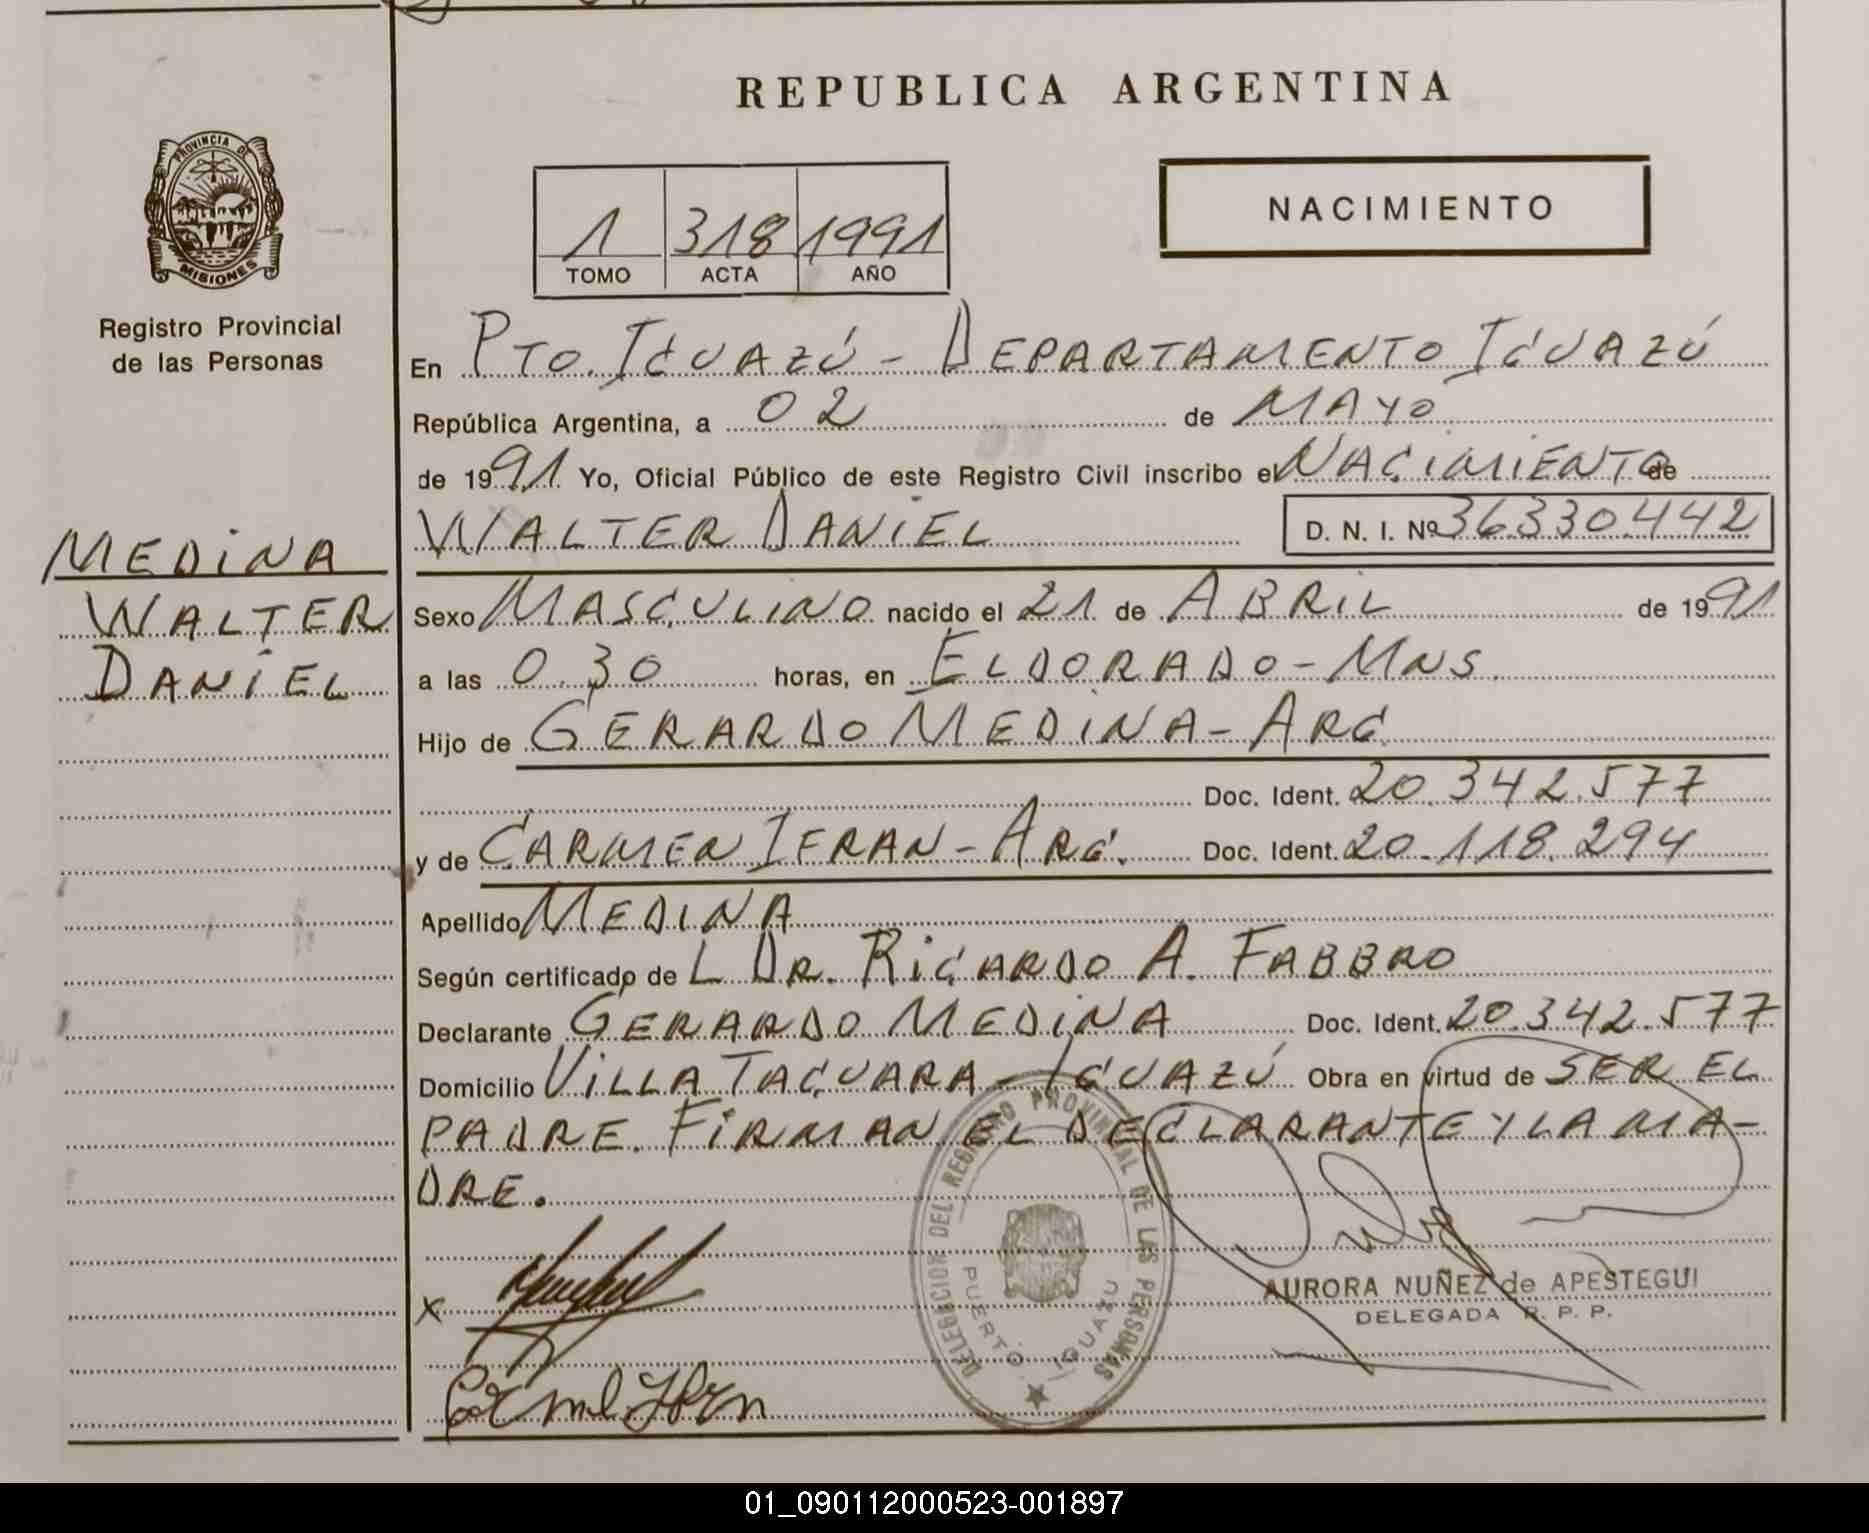 REPUBLICA ARGENTINA
PROVINCIA DE
MISIONES
Registro Provincial
de las Personas
NACIMIENTO
1 318 1991
TOMO ACTA AÑO
En PTO. IGUAZÚ - DEPARTAMENTO IGUAZÚ
República Argentina, a 02 de MAYO
de 1991 Yo, Oficial Público de este Registro Civil inscribo el NACIMIENTO de
WALTER DANIEL D. N. I. Nº 36.330.442
MEDINA
WALTER
DANIEL
Sexo MASCULINO nacido el 21 de ABRIL de 1991
a las 0.30 horas, en ELDORADO - MNS.
Hijo de GERARDO MEDINA - ARG.
Doc. Ident. 20.342.577
y de CARMEN IFRAN - ARG. Doc. Ident. 20.118.294
Apellido MEDINA
Según certificado de L DR. RICARDO A. FABBRO
Declarante GERARDO MEDINA Doc. Ident. 20.342.577
Domicilio VILLA TACUARA - IGUAZÚ Obra en virtud de SER EL
PADRE. FIRMAN EL DECLARANTE Y LA MA-
DRE.
DELEGACION DEL REGISTRO PROVINCIAL DE LAS PERSONAS
PUERTO IGUAZU
AURORA NUÑEZ de APESTEGUI
DELEGADA R. P. P.
X
01_090112000523-001897